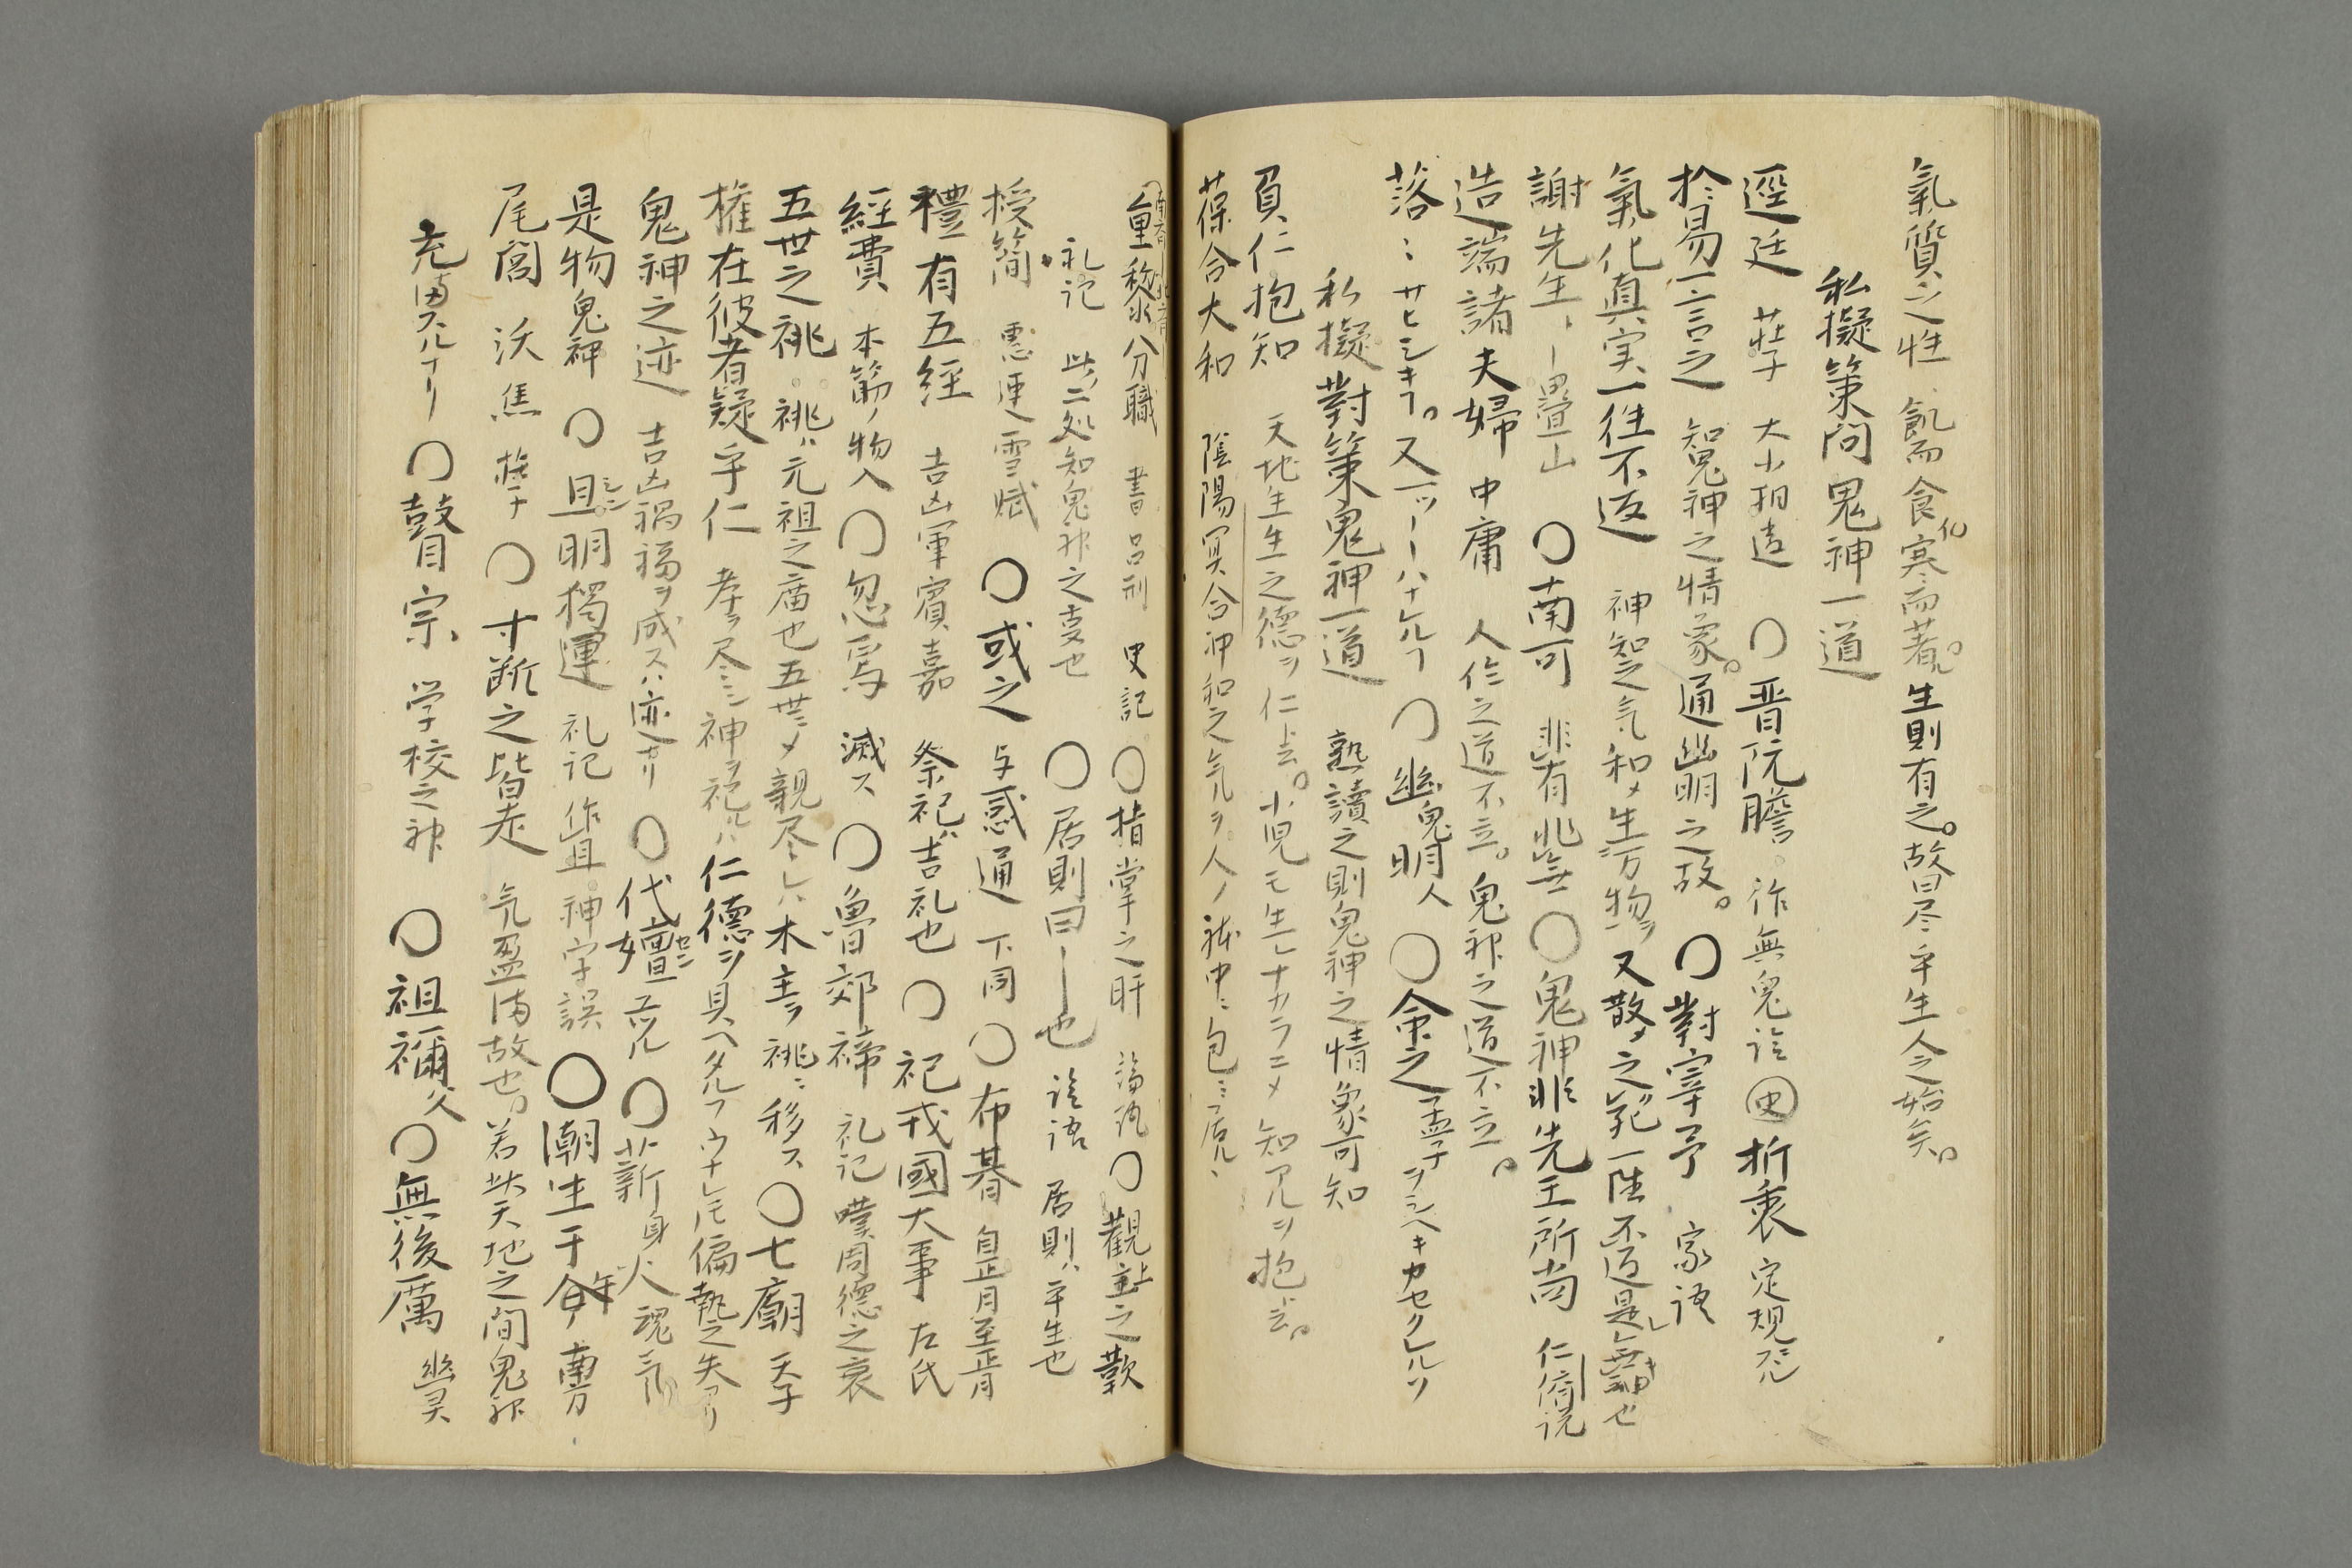 氣質之性 飢而食寒而着 生則有之。故曰尽乎生人之始矣。
私擬策問鬼神一道
逕廷 荘子 大小相違 〇晋阮瞻 作無鬼論 史 折衷 定規
於易一言之 知鬼神之情象。通幽明之故。〇對宰予 家語
氣化真実一往不返 神知之気和メ生万物ヲ又散メ之死一往不返是無神也
謝先生 疊山 〇南可 非有非無 〇鬼神非先王所尚 仁斎说
造端諸夫婦 中庸 人倫之道不立。鬼神之道不立。
落〻 サヒシキフ。又一ツーハナルヽフ 〇幽鬼明人 〇命之 孟子 ヲシヘキカセクルヽソ
私擬對策鬼神一道 熟讀之則鬼神之情象可知
負仁抱知 天地生生之德ヲ仁ト云。小児モ生レナカラニメ知アルヲ抱ト云。
葆合大和 陰陽冥合冲和之気ヲ人ノ裁中ニ包ミ
重黎分職 書呂刑 史記 〇指掌之 論語 〇觀上之歎
礼記 此ノ二処知鬼神之支也 〇居則曰ー也 論語 居則ハ平生也
授簡 惠連雪賦 〇或之 与惑通 下同 〇布碁 自正月至正月
禮有五經 吉凶軍賓嘉 祭祀ハ吉礼也 〇祀戎國大事 左氏
經費 本筋ノ物入 〇忽焉 滅ス 〇魯郊禘 礼記 嘆周德之衰
五世之祧 祧ハ元祖之廟也五世ニメ親尽レハ木主ヲ祧ニ移ス 〇七廟 天子
権在彼者疑乎仁 孝ヲ尽シ神ヲ祀ルハ仁德ヲ具ヘタルフウナレ圧偏執之失アリ
鬼神之迹 吉凶禍福ヲ成スハ迹ナリ 〇代嬗 〇薪身火魂気
是物鬼神 〇且明獨運 礼記 作且 神字誤 〇潮生于午 南方
尾閭 沃焦 荘子 〇寸斷之皆走 気盈満故也。若此天地之間鬼神
充満スルナリ 〇瞽宗 学校之神 〇祖禰父 〇無後厲 幽灵